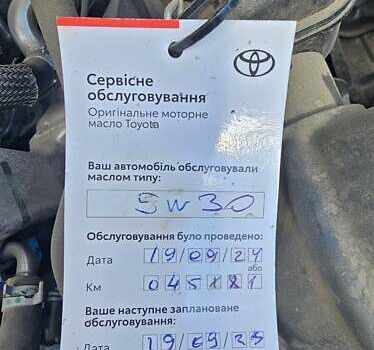 Сервісне
обслуговування
Оригінальне моторне
масло Toyota
Ваш автомобіль обслуговували
маслом типу:
5W30
Обслуговування було проведено:
Дата 19/09/24
або
Км
Ваше наступне заплановане
обслуговування:
Дата